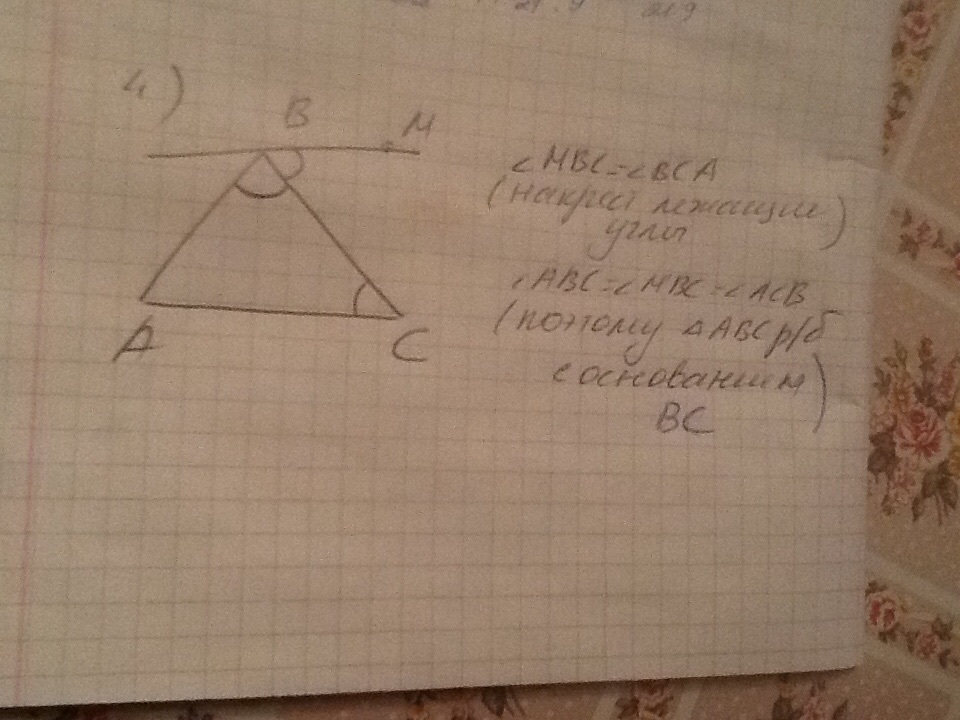 4)
B
M
A
C
∠MBC=∠BCA
(накрест лежащие
углы)
∠ABC=∠MBC=∠ACB
(поэтому △ABC р/б
с основанием
BC)